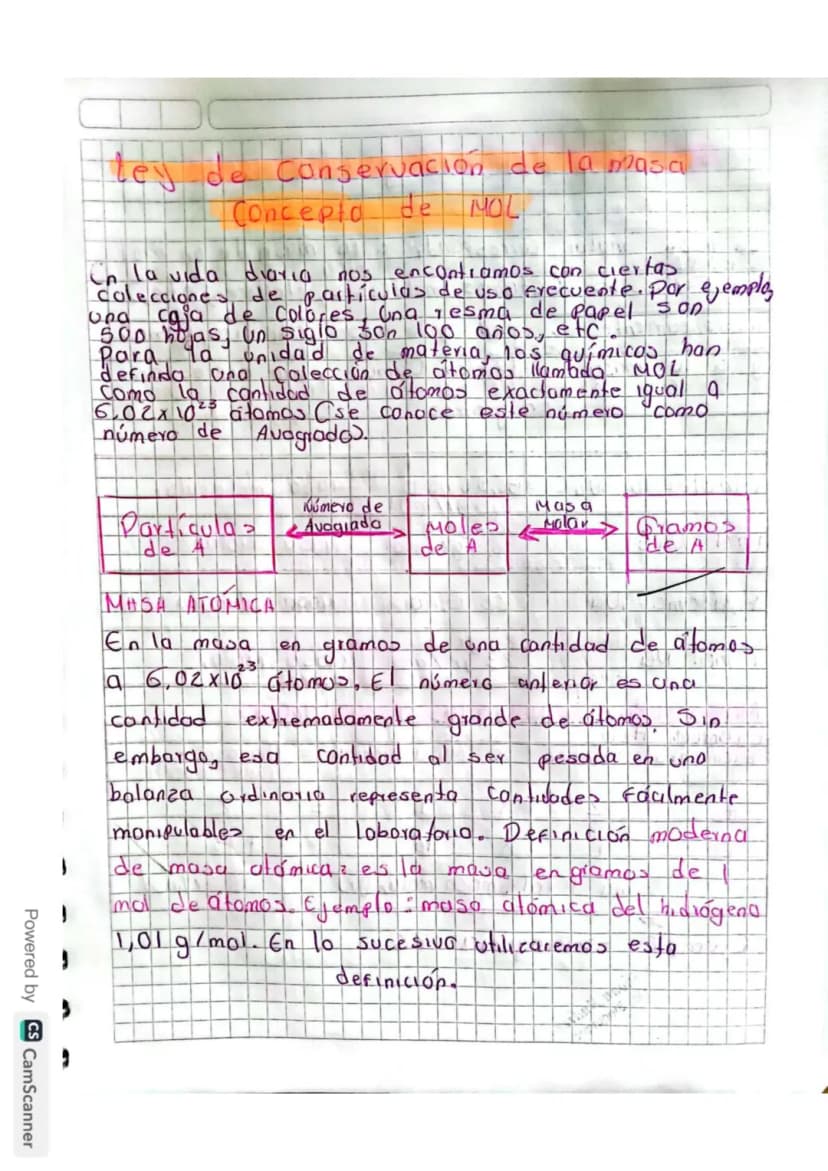 Ley de Conservación de la masa
Concepto de MOL
En la vida diaria nos encontramos con ciertas
colecciones de partículas de uso frecuente. Por ejemplo,
una caja de colores, una resma de papel son
500 hojas, un siglo son 100 años, etc.
Para la unidad de materia, los químicos han
definido una colección de átomos llambda MOL
como la cantidad de átomos exactamente igual a
6,02x10²³ átomos (se conoce este número como
número de Avogrado).
Partículas de A
Número de Avogrado
Moles de A
Masa Molar
Gramos de A
MASA ATÓMICA
En la masa en gramos de una cantidad de átomos
a 6,02x10²³ átomos. El número anterior es una
cantidad extremadamente grande de átomos. Sin
embargo, esa cantidad al ser pesada en una
balanza ordinaria representa cantidades fácilmente
manipulables en el laboratorio. Definición moderna
de masa atómica: es la masa en gramos de 1
mol de átomos. Ejemplo: masa atómica del hidrógeno
1,01 g/mol. En lo sucesivo utilicaremos esta
definición.
Powered by CS CamScanner